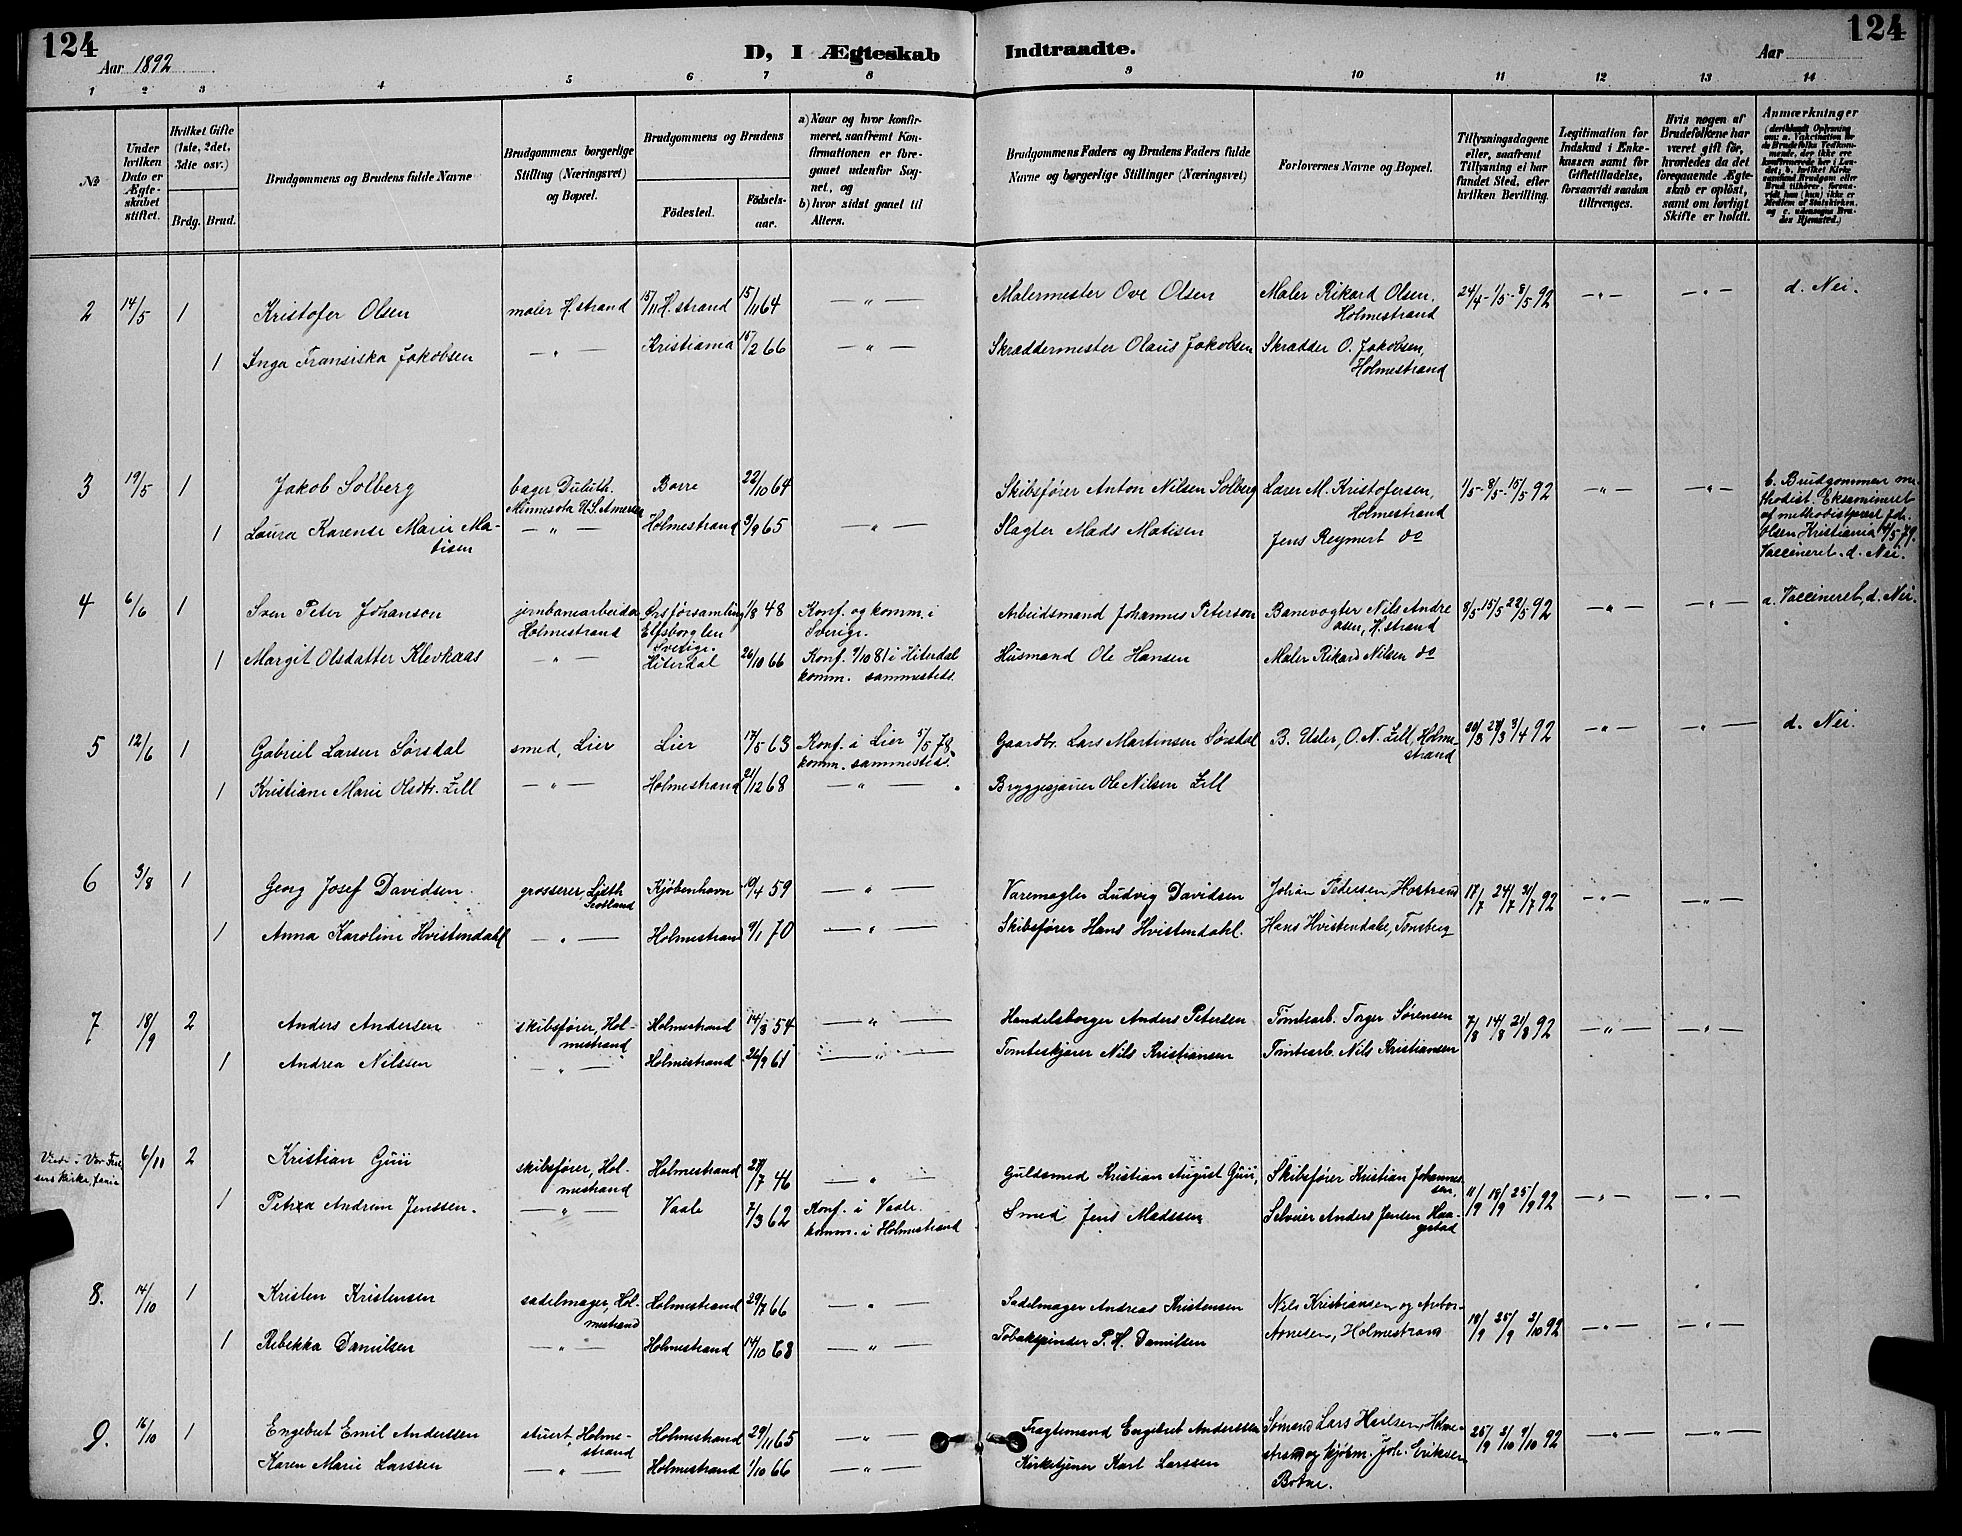 124
Aar 1892
D, I Ægteskab
Indtraadte.
Aar
124
1 2 3 4 5 6 7 8 9 10 11 12 13 14
№
Under hvilken Dato er Ægteskabet stiftet.
Hvilket Gifte (1ste, 2det, 3die osv.)
Brdg. Brud.
Brudgommens og Brudens fulde Navne
Brudgommens borgerlige Stilling (Næringsvei) og Bopæl.
Brudgommens og Brudens
Födested.
Födsels-aar.
a) Naar og hvor konfirmeret, saafremt Konfirmationen er foregaaet udenfor Sognet, og
b) hvor sidst gaaet til Alters.
Brudgommens Faders og Brudens Faders fulde Navne og borgerlige Stillinger (Næringsvei)
Forlovernes Navne og Bopæl.
Tillysningsdagene eller, saafremt Tillysning ei har fundet Sted, efter hvilken Bevilling.
Legitimation for Indskud i Enkekassen samt for Giftetilladelse, forsaavidt saadan tiltrænges.
Hvis nogen af Brudefolkene har været gift för, hvorledes da det foregaaende Ægteskab er oplöst, samt om lovligt Skifte er holdt.
Anmærkninger
2 14/5 1 Kristofer Olsen maler H.strand 15/11 H.strand 15/11 64 — " — Malermester Ove Olsen Maler Rikard Olsen, Holmestrand 24/4 - 1/5 - 8/5 92 — " — — " — d. Nei.
1 Inga Fransiska Jakobsen — " — Kristiania 15/2 66 — " — Skræddermester Olaus Jakobsen Skrædder O. Jakobsen, Holmestrand
3 19/5 1 Jakob Solberg bager Duluth. Minnesota U.S. Amerika Borre 22/10 64 Skibsfører Anton Nilsen Solberg Lærer M. Kristofersen, Holmestrand 1/5 - 8/5 - 15/5 92 — " — — " — b. Brudgommen methodist. Eksamineret af methodistpræst Olsen Kristiania 79. Vaccineret. d. Nei.
1 Laura Karense Marie Matisen — " — Holmestrand 3/9 65 — " — Slagter Mads Matisen Jens Reymert do
4 6/6 1 Sven Peter Johanson jernbanearbeider Holmestrand Ørsforsamling Elfsborg len Sverige. 1/8 48 Konf. og komm. i Sverige. Arbeidsmand Johannes Peterson Banevogter Nils Andreasen, H.strand 8/5 15/5 22/5 92 — " — — " — a. Vaccineret, d. Nei.
1 Margit Olsdatter Klevkaas — " — Hiterdal 26/10 66 Konf. 9/10 81 i Hiterdal komm. sammesteds. Husmand Ole Hansen Maler Rikard Nilsen do
5 12/6 1 Gabriel Larsen Sørsdal smed, Lier Lier 17/5 63 Konf. i Lier 5/5 78. komm. sammesteds. Gaardbr. Lars Martinsen Sørsdal B. Usler, O. N. Lill, Holmestrand 20/3 27/3 3/4 92 — " — — " — d. Nei.
1 Kristiane Marie Olsdtr. Lill — " — Holmestrand 21/12 68 — " — Bryggesjauer Ole Nilsen Lill
6 3/8 1 Georg Josef Davidsen grosserer, Leith Scotland Kjøbenhavn 10/4 59 — " — Varemægler Ludvig Davidsen Johan Pedersen, Hostrand 17/7 24/7 31/7 92 — " — — " —
1 Anna Karoline Hvistendahl — " — Holmestrand 9/1 70 — " — Skibsfører Hans Hvistendahl. Hans Hvistendahl, Tønsberg
7 18/9 2 Anders Andersen skibsfører, Holmestrand Holmestrand 14/8 54 — " — Handelsborger Anders Petersen Tomtearb. Torger Sørensen 7/8 14/8 21/8 92 — " — — " —
1 Andrea Nilssen — " — Holmestrand 26/9 61 — " — Tomteskjører Nils Kristiansen Tomtearb. Nils Kristiansen
Viede i Vor Frelsers kirke,
6/11 2 Kristian Güü skibsfører, Holmestrand Holmestrand 27/7 46 — " — Guldsmed Kristian August Güü, Skibsfører Kristian Johannessen, 11/9 18/9 25/9 92 — " — — " —
1 Petrea Andrine Jenssen. — " — Vaale 7/3 62 Konf. i Vaale. komm. i Holmestrand Smed Jens Madssen Selveier Anders Jensen Haugestad
8. 14/10 1 Kristen Kristensen sadelmager, Holmestrand Holmestrand 29/7 66 — " — Sadelmager Andreas Kristensen Nils Kristiansen og Anton Arnesen, Holmestrand 18/9 25/9 2/10 92 — " — — " —
1 Rebekka Danielsen — " — Holmestrand 14/10 68 — " — Tobakspinder P. H. Danielsen
9. 16/10 1 Engebret Emil Anderssen stuert, Holmestrand Holmestrand 29/11 65 — " — Fragtemand Engebret Anderssen Sømand Lars Heilsen, Holmestrand og kjøbm. Joh. Eriksen Botne. 25/9 2/10 9/10 92 — " — — " —
Karen Marie Larssen — " — Holmestrand 1/10 66 — " — Kirketjener Karl Larssen